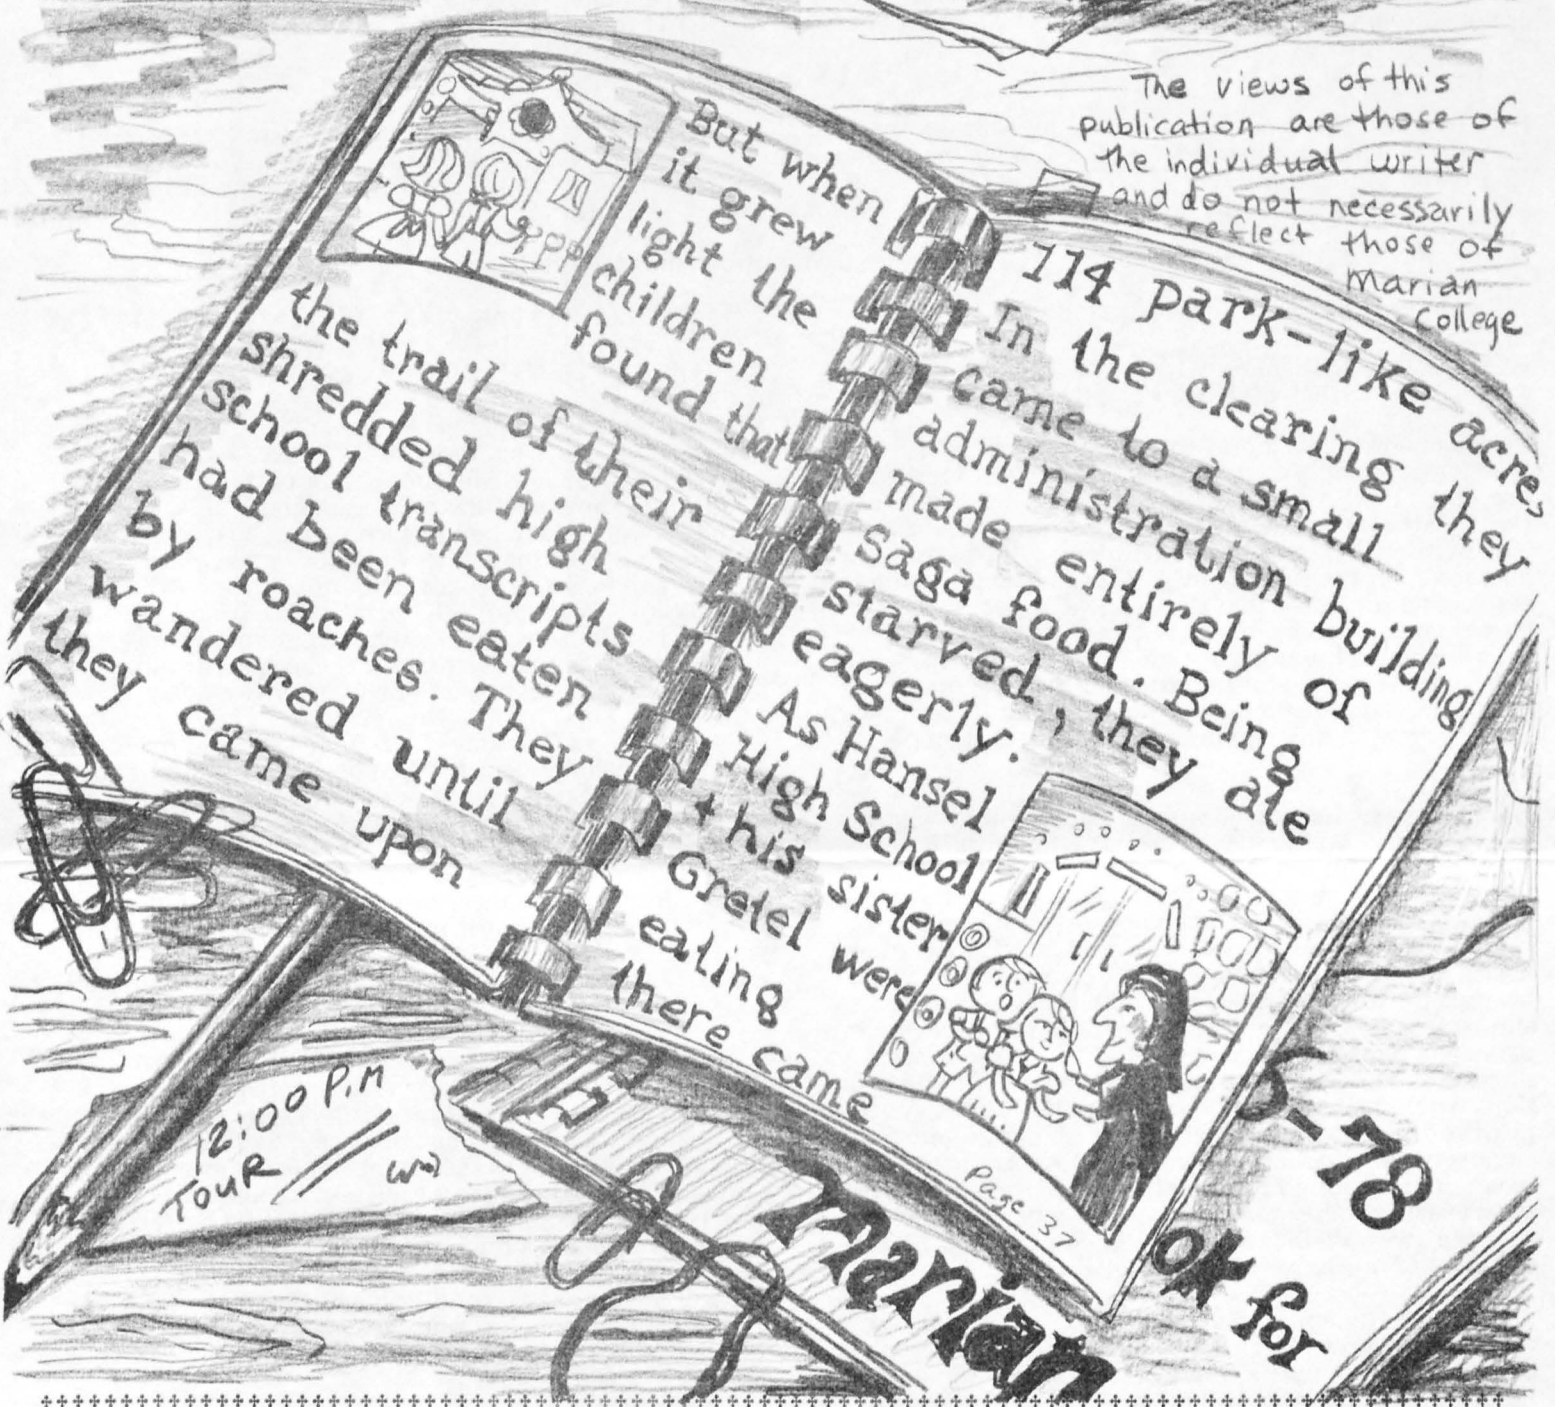 The views of this
publication are those of
the individual writer
and do not necessarily
reflect those of
Marian
College
But when
it grew
light the
children
found that
the trail of their
shredded high
school transcripts
had been eaten
by roaches. They
wandered until
they came upon
114 park-like acres
In the clearing they
came to a small
administration building
made entirely of
Saga food. Being
starved, they ate
eagerly.
As Hansel
High School
+ his sister
Gretel were
eating
there came
Page 37
12:00 P.M
TOUR
-78
ok for
Marian